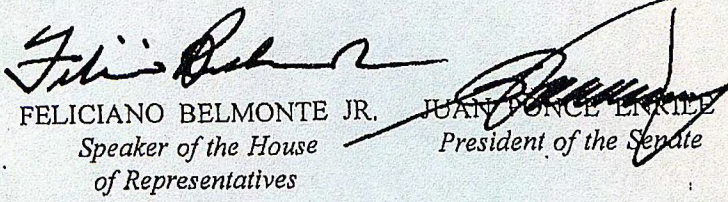 FELICIANO BELMONTE JR.
Speaker of the House
of Representatives
JUAN PONCE ENRILE
President of the Senate